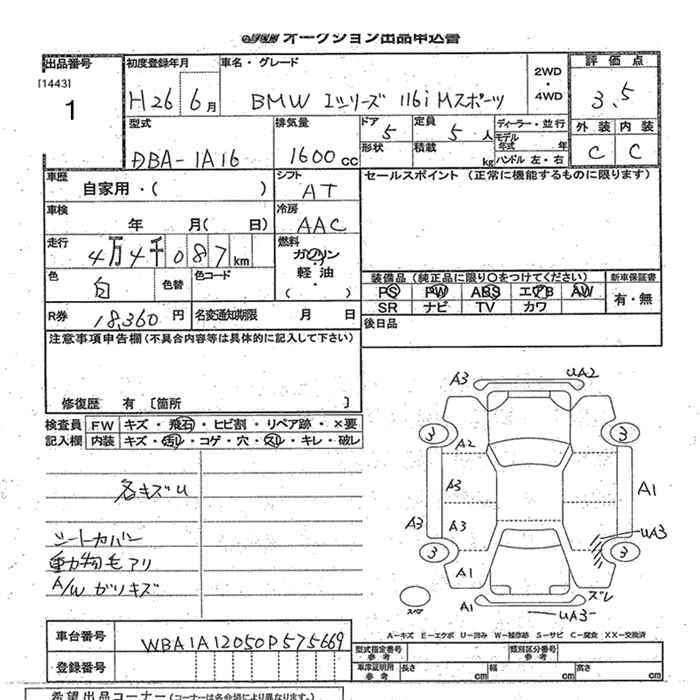 オークション出品申込書
出品番号 初度登録年月 車名・グレード 2WD・4WD 評価点
[1443] 1 H26 6月 BMW 1シリーズ 116i Mスポーツ 3.5
型式 排気量 ドア 5 定員 5人 ディーラー・並行 外装 内装
DBA-1A16 1600cc 形状 積載 kg モデル年式 年 ハンドル 左・右 C C
車歴 自家用・( ) シフト AT セールスポイント (正常に機能するものに限ります)
車検 年 月( 日) 冷房 AAC
走行 4万4千087km 燃料 ガソリン 軽油 ・( )
色 白 色替 色コード 装備品 (純正品に限り○をつけてください) 新車保証書
PS PW ABS エアB AW 有・無
SR ナビ TV カワ
R券 18,360円 名変通知期限 月 日 後日品
注意事項申告欄(不具合内容等は具体的に記入して下さい)
修復歴 有 〔箇所 〕
検査員 FW キズ・飛石・ヒビ割・リペア跡・×要
記入欄 内装 キズ・汚レ・コゲ・穴・スレ・キレ・破レ
各キズU
シートカバー
動物毛アリ
A/W ガリキズ
A3 UA2
3 3
A2
A3 A1
A3 A3 UA3
3 3
A1 ズレ
スペア A1 UA3
A-キズ E-エクボ U-凹み W-補修跡 S-サビ C-腐食 XX-交換済
車台番号 WBA1A12050P575669 型式指定番号 参考 類別区分番号 参考
登録番号 車庫証明用 参考 長さ cm 幅 cm 高さ cm
希望出品コーナー(コーナーは各会場により異なります。)